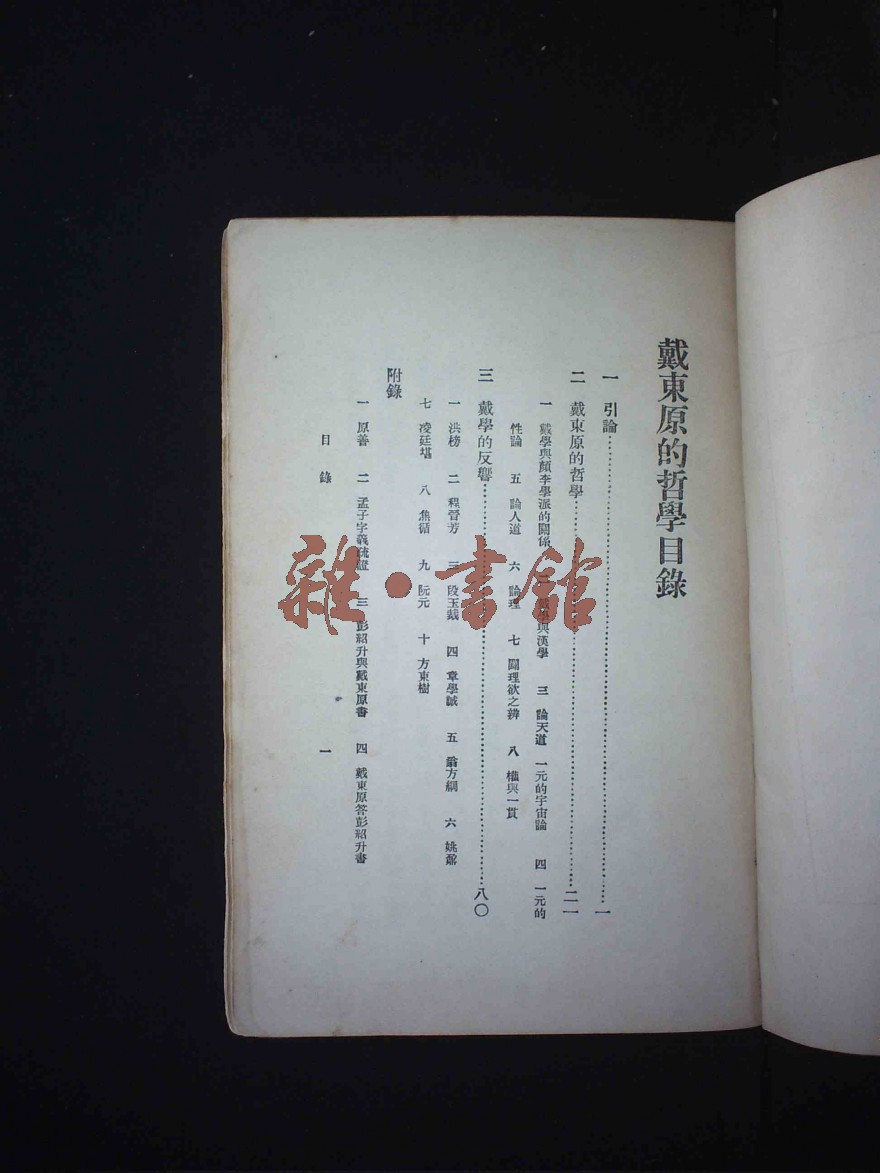 戴東原的哲學目錄
一 引論……一
二 戴東原的哲學……二一
一 戴學與顏李學派的關係 與漢學 三 論天道 一元的宇宙論 四 一元的
性論 五 論人道 六 論理 七 闢理欲之辨 八 權與一貫
三 戴學的反響……八〇
一 洪榜 二 程晉芳 三 段玉裁 四 章學誠 五 翁方綱 六 姚鼐
七 凌廷堪 八 焦循 九 阮元 十 方東樹
附錄
一 原善 二 孟子字義疏證 三 彭紹升與戴東原書 四 戴東原答彭紹升書
目錄 一
雜·書館